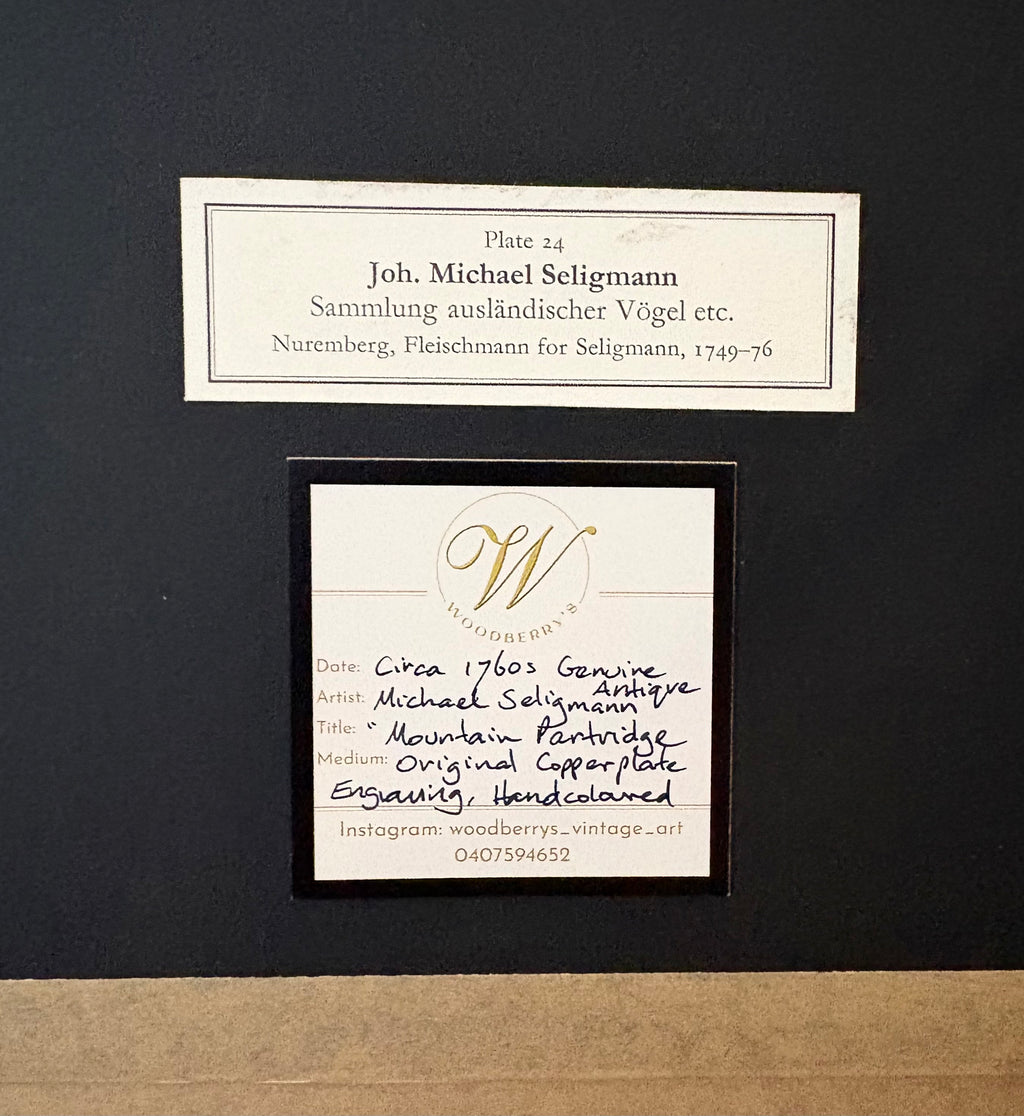 Plate 24
Joh. Michael Seligmann
Sammlung ausländischer Vögel etc.
Nuremberg, Fleischmann for Seligmann, 1749–76
W
WOODBERRY'S
Date: Circa 1760s Genuine
Antique
Artist: Michael Seligmann
Title: " Mountain Partridge
Medium: Original Copperplate
Engraving, Handcoloured
Instagram: woodberrys_vintage_art
0407594652